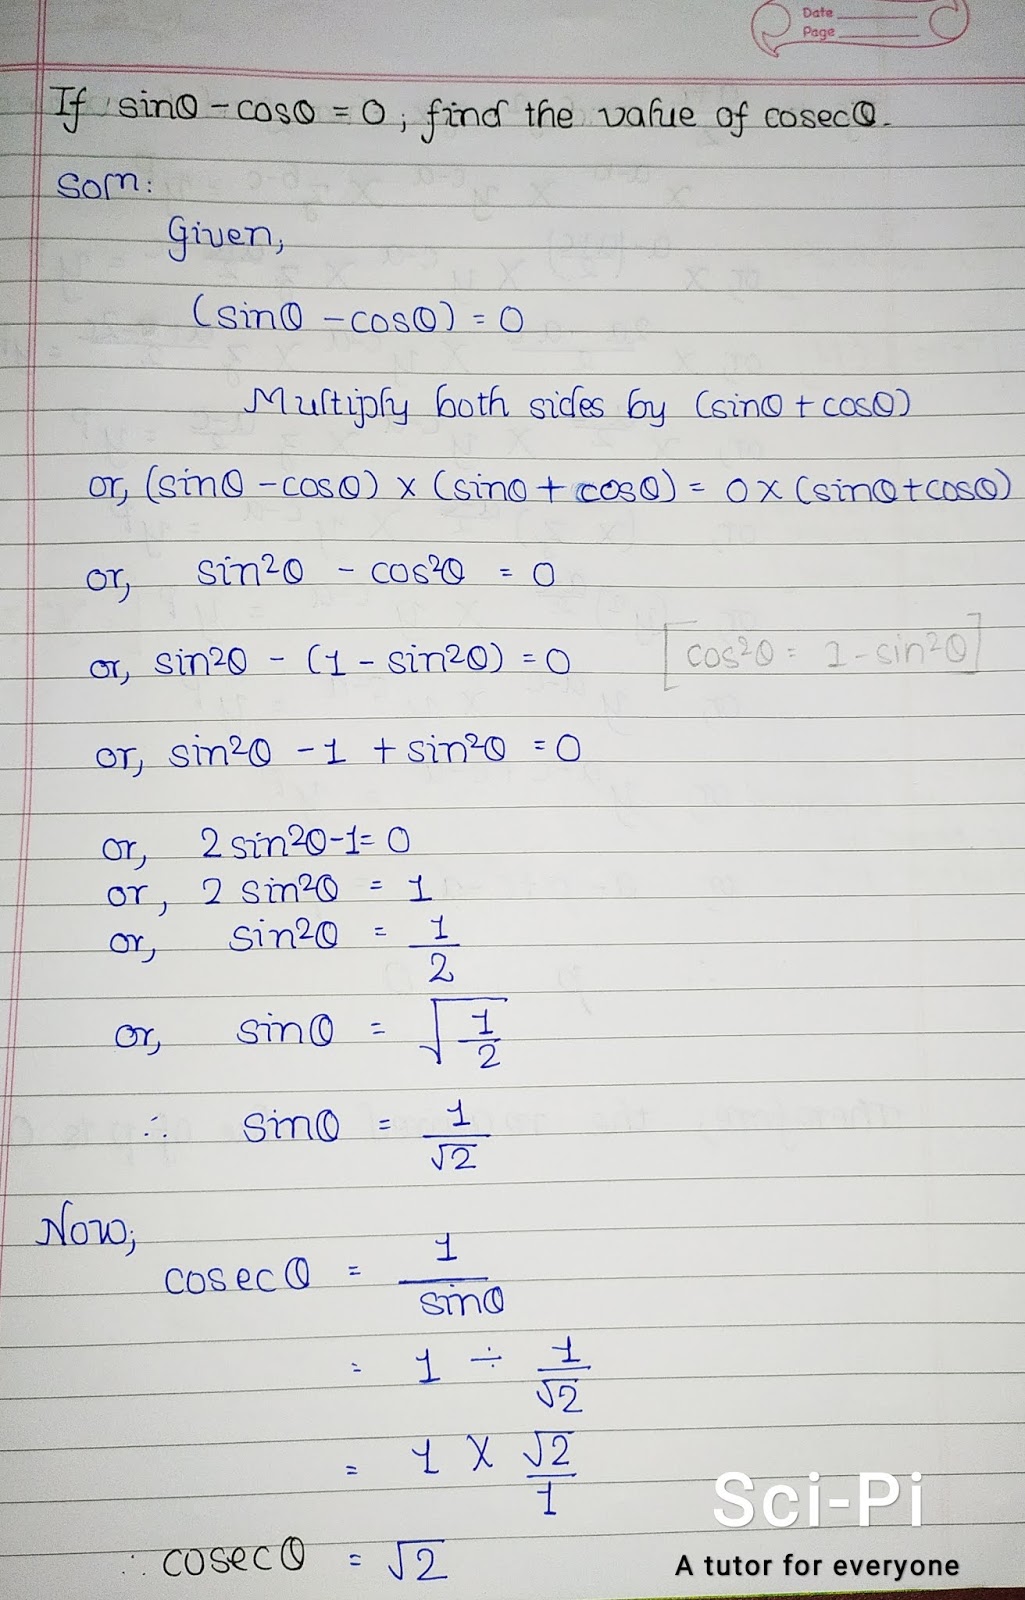 Date
Page
If sinθ - cosθ = 0, find the value of cosecθ.
Soln:
Given,
(sinθ - cosθ) = 0
Multiply both sides by (sinθ + cosθ)
or, (sinθ - cosθ) × (sinθ + cosθ) = 0 × (sinθ + cosθ)
or, sin²θ - cos²θ = 0
or, sin²θ - (1 - sin²θ) = 0 [cos²θ = 1 - sin²θ]
or, sin²θ - 1 + sin²θ = 0
or, 2 sin²θ - 1 = 0
or, 2 sin²θ = 1
or, sin²θ = 1/2
or, sinθ = √(1/2)
∴ sinθ = 1/√2
Now,
cosecθ = 1/sinθ
= 1 ÷ 1/√2
= 1 × √2/1
∴ cosecθ = √2
Sci-Pi
A tutor for everyone